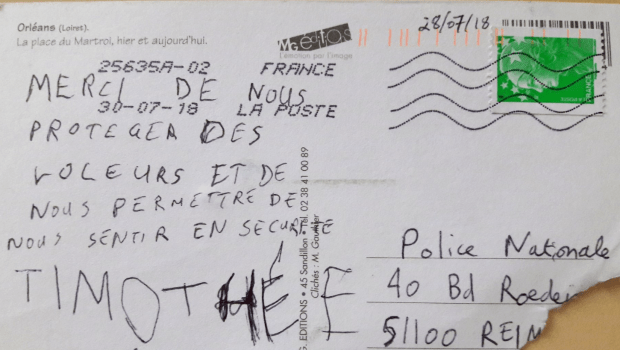 Orléans (Loiret).
La place du Martroi, hier et aujourd'hui.
MG éditions
L'émotion par l'image
28/07/18
25635A-02 FRANCE
30-07-18 LA POSTE
MERCI DE NOUS
PROTEGER DES
VOLEURS ET DE
NOUS PERMETTRE DE
NOUS SENTIR EN SECURITE
TIMOTHÉE
G. EDITIONS • 45 Sandillon Tél. 02 38 41 00 89
Clichés : M. Gaunier
FRANCE
Police Nationale
40 Bd Roeder
51100 REIM